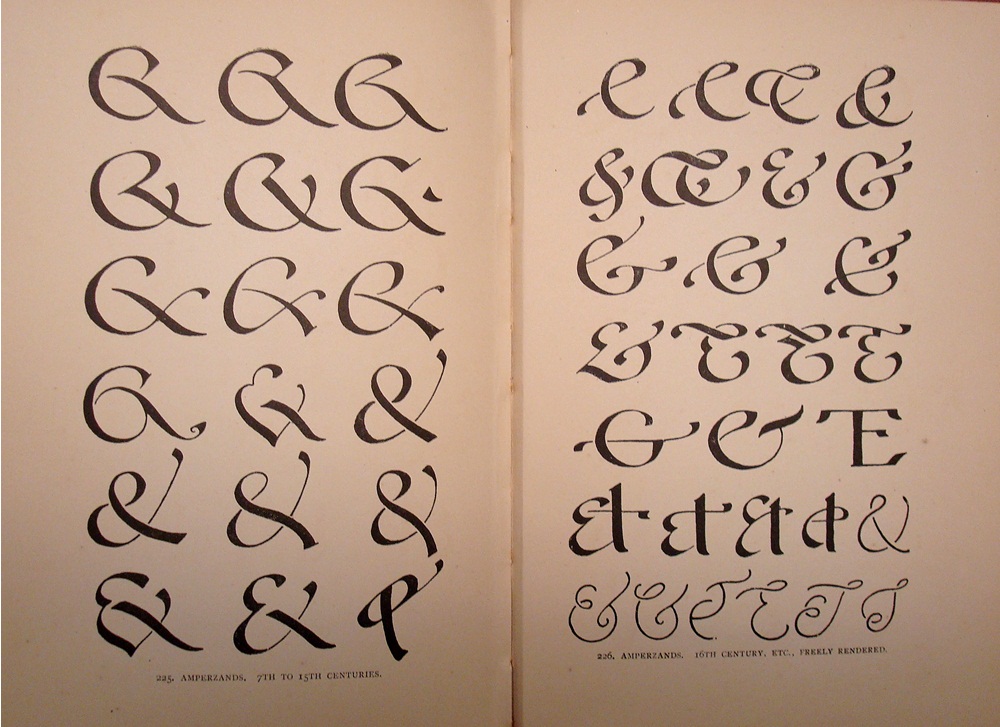 & & &
& & &
& & &
& & &
& & &
& & &
225. AMPERZANDS. 7TH TO 15TH CENTURIES.
& & & &
& & & &
& & &
& & & &
& & &
& & & & &
& & & & & &
226. AMPERZANDS. 16TH CENTURY, ETC., FREELY RENDERED.